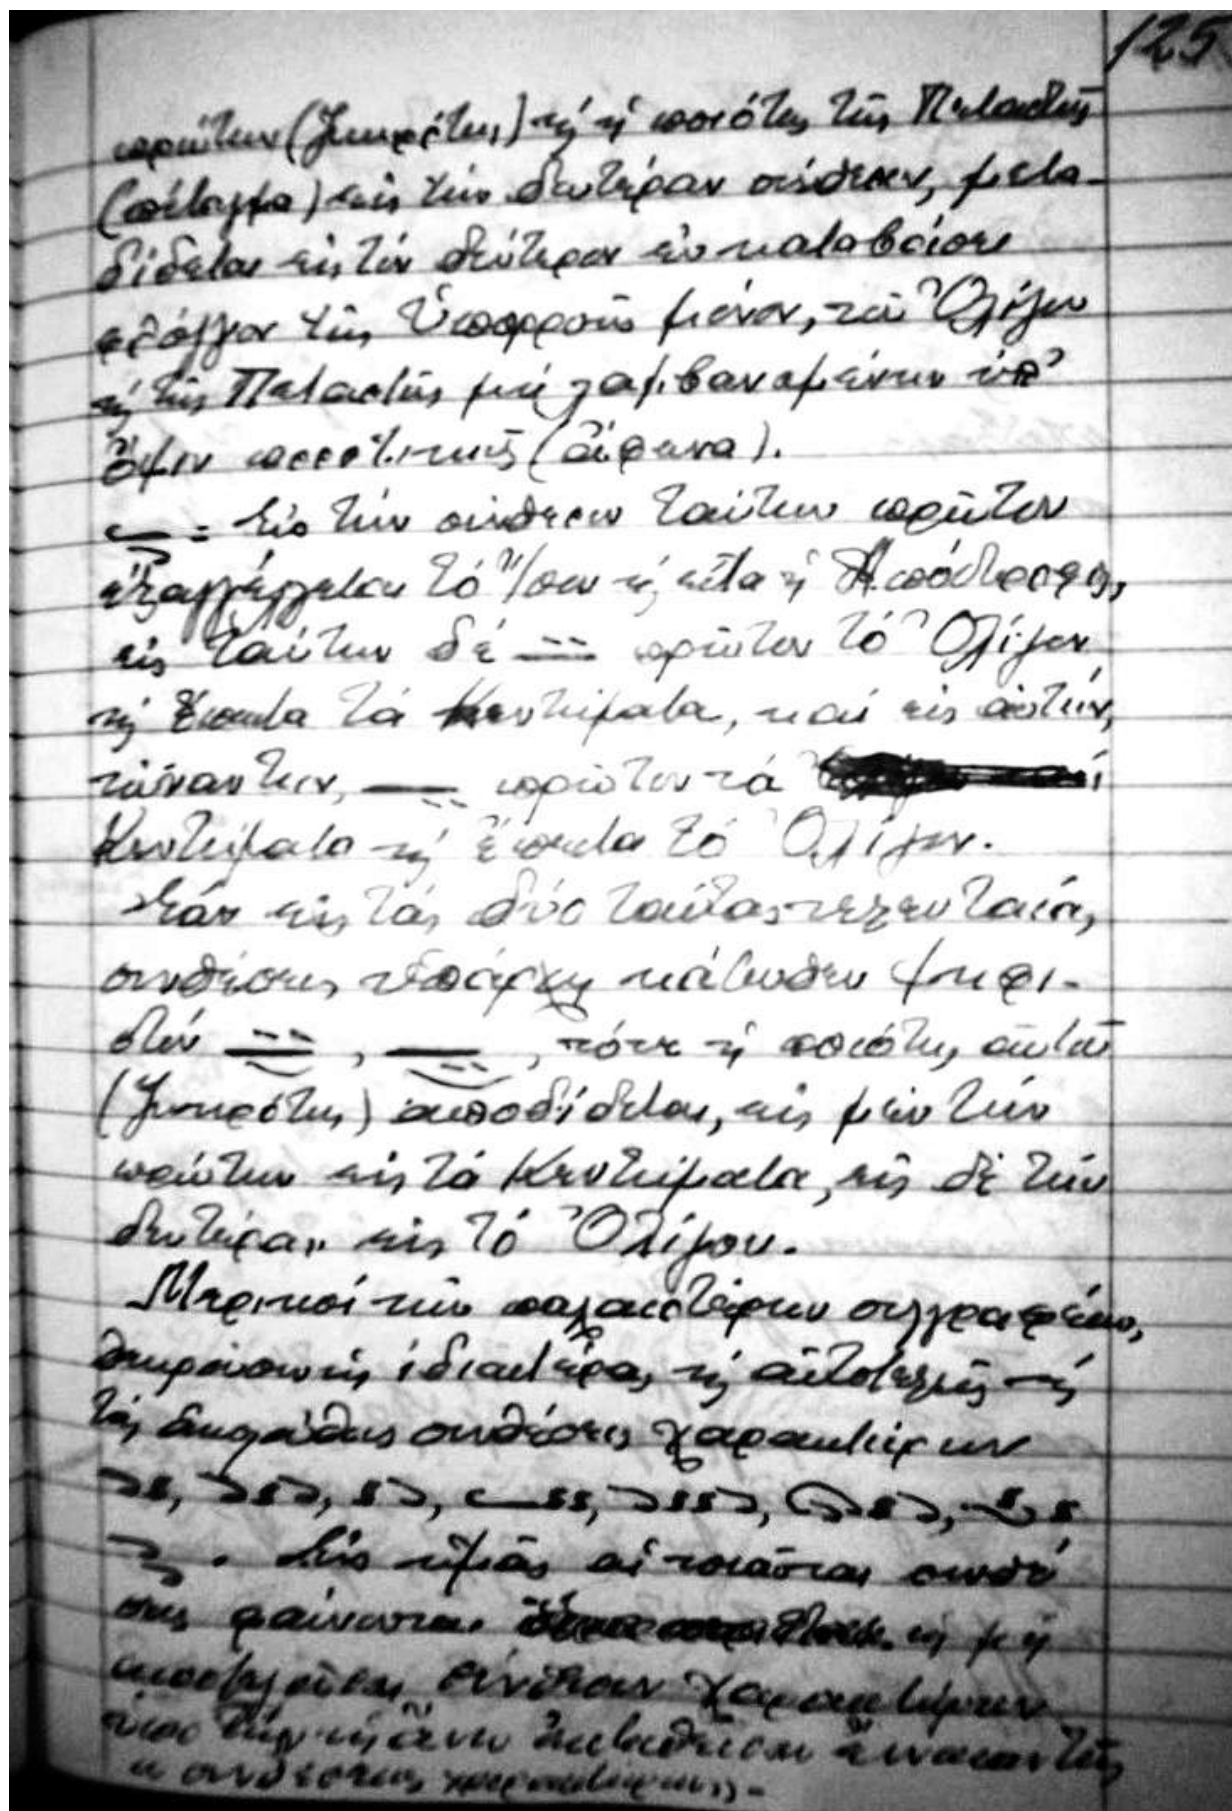 125
πρώτην (ζωηρότης) ἢ ἡ ποιότης τῆς Πεταστῆς
(πέταγμα) εἰς τὴν δευτέραν σύνθεσιν, μετα-
δίδεται εἰς τὸν δεύτερον ἐν καταβάσει
φθόγγον τῆς Ὑπορροῆς μόνον, τοῦ Ὀλίγου
ἢ τῆς Πεταστῆς μὴ λαμβανομένων ὑπ'
ὄψιν ποσοτικῶς (ἄφωνα).
= Εἰς τὴν σύνθεσιν ταύτην πρῶτον
ἐξαγγέλλεται τὸ Ἴσον καὶ εἶτα ἡ Ἀπόστροφος,
εἰς ταύτην δὲ πρῶτον τὸ Ὀλίγον
καὶ ἔπειτα τὰ Κεντήματα, καὶ εἰς αὐτήν,
τοὐναντίον, πρῶτον τὰ
Κεντήματα καὶ ἔπειτα τὸ Ὀλίγον.
Ἐὰν εἰς τὰς δύο ταύτας τελευταίας
συνθέσεις ὑπάρχῃ κάτωθεν ψηφι-
στόν , , τότε ἡ ποιότης αὐτοῦ
(ζωηρότης) ἀποδίδεται, εἰς μὲν τὴν
πρώτην εἰς τὰ Κεντήματα, εἰς δὲ τὴν
δευτέραν εἰς τὸ Ὀλίγον.
Μερικοὶ τῶν παλαιοτέρων συγγραφέων,
θεωροῦν ὡς ἰδιαιτέρας καὶ αὐτοτελεῖς καὶ
τὰς συνθέσεις χαρακτήρων
, , , , , ,
. Εἰς ἡμᾶς αἱ τοιαῦται συνθέ
σεις φαίνονται ὡς μὴ
σύνθεσιν χαρακτήρων
ὑπὸ τὴν ὡς ἄνω ἔννοιαν τῆς
συνθέσεως χαρακτήρων.-